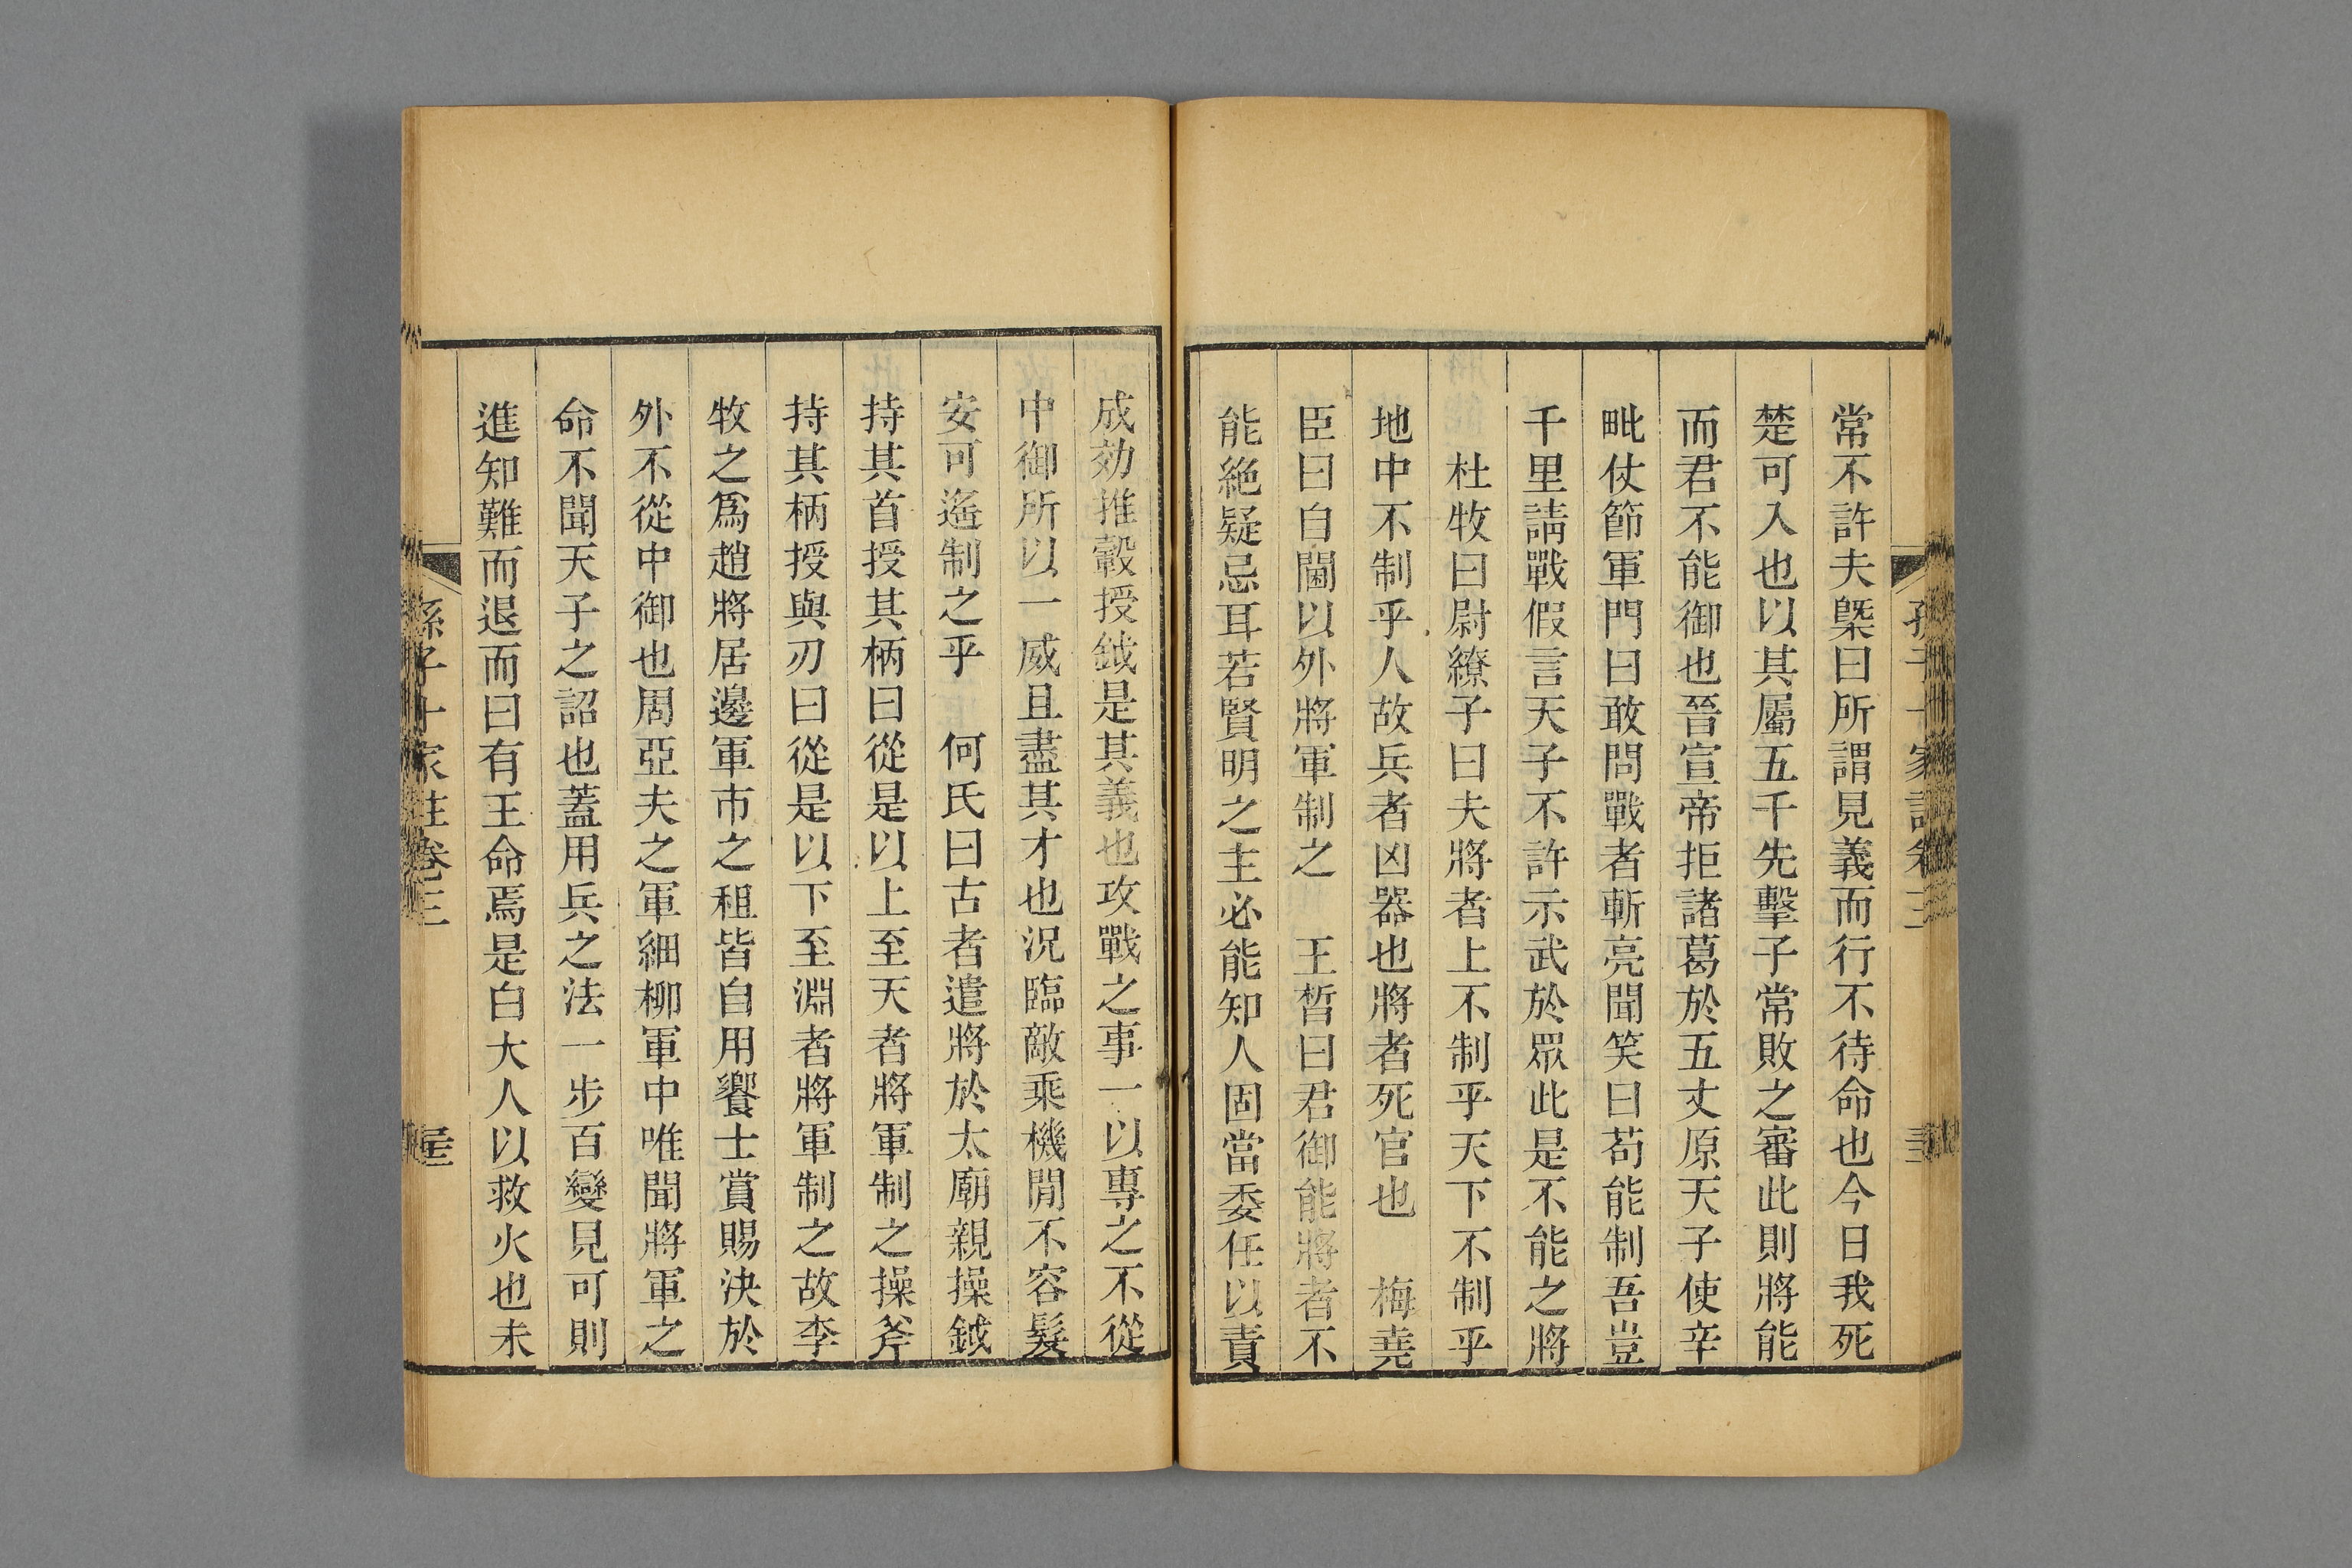 常不許夫槩曰所謂見義而行不待命也今日我死
楚可入也以其屬五千先擊子常敗之審此則將能
而君不能御也晉宣帝拒諸葛於五丈原天子使辛
毗仗節軍門曰敢問戰者斬亮聞笑曰苟能制吾豈
千里請戰假言天子不許示武於眾此是不能之將
杜牧曰尉繚子曰夫將者上不制乎天下不制乎
地中不制乎人故兵者凶器也將者死官也　梅堯
臣曰自閫以外將軍制之　王晳曰君御能將者不
能絶疑忌耳若賢明之主必能知人固當委任以責
成効推轂授鉞是其義也攻戰之事一以專之不從
中御所以一威且盡其才也況臨敵乘機閒不容髮
安可遙制之乎　何氏曰古者遣將於太廟親操鉞
持其首授其柄曰從是以上至天者將軍制之操斧
持其柄授與刃曰從是以下至淵者將軍制之故李
牧之爲趙將居邊軍市之租皆自用饗士賞賜決於
外不從中御也周亞夫之軍細柳軍中唯聞將軍之
命不聞天子之詔也蓋用兵之法一步百變見可則
進知難而退而曰有王命焉是白大人以救火也未
孫子十家註卷三